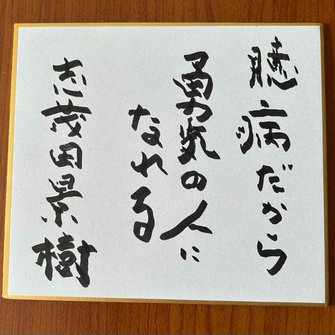 臆病だから
勇気の人に
なれる
志茂田景樹